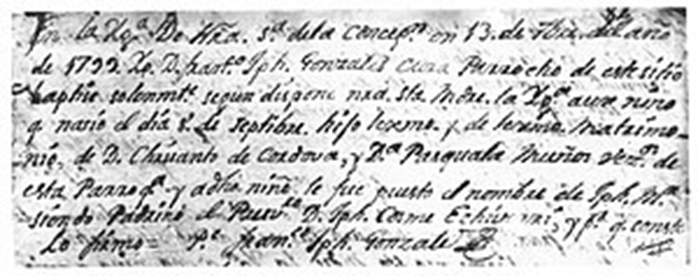 En la Ygª. De Nra. Sª. dela Concepⁿ. en 13. de del año
de 1799. Yo D. franᶜᵒ. Jph. Gonzales Cura Parrocho de este sitio
baptise solemmtᵉ. segun dispone nrã. sta. Mdre. la Ygª. a un niño
q. nasio el dia 8. de Septibre. hijo lexmo. y de lexmo. Matrimo-
nio, de D. de Cordova, y Dª. Pasquala Muños vezⁿˢ. de
esta Parroqª. y adho. niño le fue puesto el nombre de Jph. Mª.
siendo Padrino el D. Jph. Cosme y pª. q. conste
Lo firmo = franᶜᵒ. Jph. Gonzales